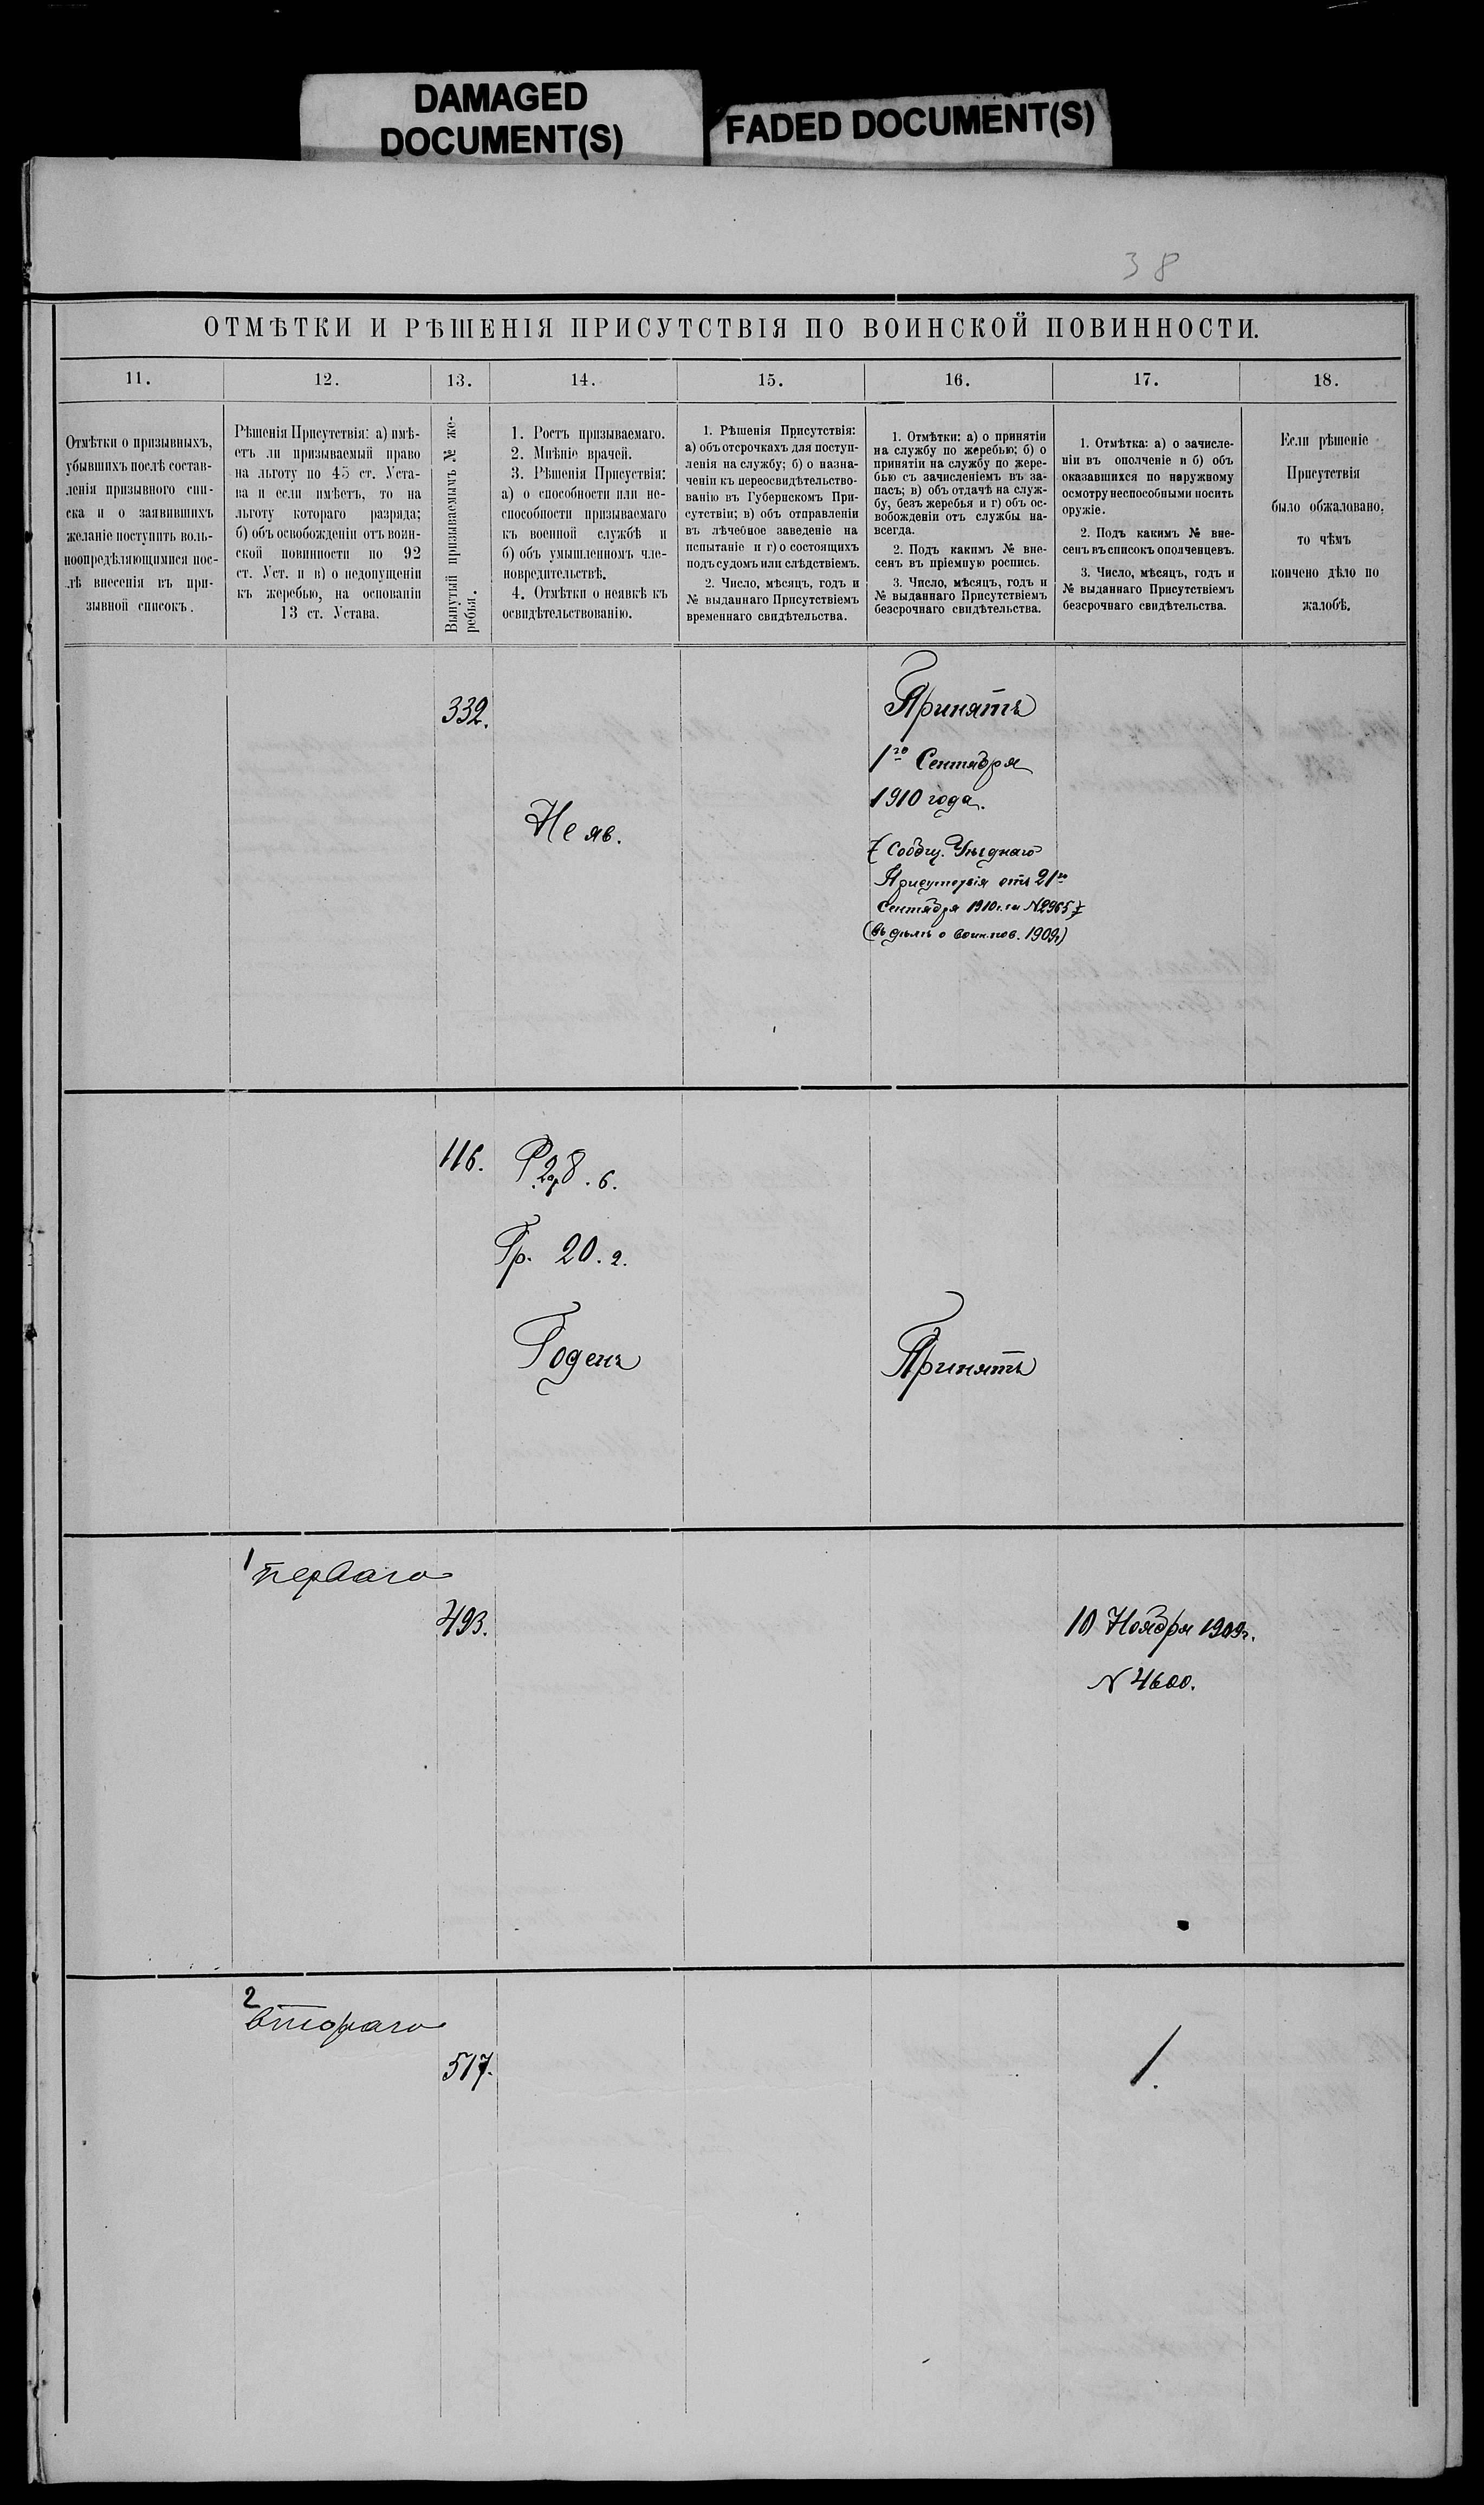 DAMAGED
DOCUMENT(S)
FADED DOCUMENT(S)
38
ОТМѢТКИ И РѢШЕНІЯ ПРИСУТСТВІЯ ПО ВОИНСКОЙ ПОВИННОСТИ.
11.
12.
13.
14.
15.
16.
17.
18.
Отмѣтки о призывныхъ,
убывшихъ послѣ состав-
ленія призывного спи-
ска и о заявившихъ
желаніе поступить воль-
ноопредѣляющимися пос-
лѣ внесенія въ при-
зывной списокъ.
Рѣшенія Присутствія: а) имѣ-
етъ ли призываемый право
на льготу по 45 ст. Уста-
ва и если имѣетъ, то на
льготу котораго разряда;
б) объ освобожденіи отъ воин-
ской повинности по 92
ст. Уст. и в) о недопущеніи
къ жеребью, на основаніи
13 ст. Устава.
Вынутый призываемымъ № же-
ребья.
1. Ростъ призываемаго.
2. Мнѣніе врачей.
3. Рѣшенія Присуствія:
а) о способности или не-
способности призываемаго
къ военной службѣ и
б) объ умышленномъ чле-
новредительствѣ.
4. Отмѣтки о неявкѣ къ
освидѣтельствованію.
1. Рѣшенія Присутствія:
а) объ отсрочкахъ для поступ-
ленія на службу; б) о назна-
ченіи къ переосвидѣтельство-
ванію въ Губернскомъ При-
сутствіи; в) объ отправленіи
въ лѣчебное заведеніе на
испытаніе и г) о состоящихъ
подъ судомъ или слѣдствіемъ.
2. Число, мѣсяцъ, годъ и
№ выданнаго Присутствіемъ
временнаго свидѣтельства.
1. Отмѣтки: а) о принятіи
на службу по жеребью; б) о
принятіи на службу по жере-
бью съ зачисленіемъ въ за-
пасъ; в) объ отдачѣ на служ-
бу, безъ жеребья и г) объ ос-
вобожденіи отъ службы на-
всегда.
2. Подъ какимъ № вне-
сенъ въ пріемную роспись.
3. Число, мѣсяцъ, годъ и
№ выданнаго Присутствіемъ
безсрочнаго свидѣтельства.
1. Отмѣтка: а) о зачисле-
ніи въ ополченіе и б) объ
оказавшихся по наружному
осмотру неспособными носить
оружіе.
2. Подъ какимъ № вне-
сенъ въ списокъ ополченцевъ.
3. Число, мѣсяцъ, годъ и
№ выданнаго Присутствіемъ
безсрочнаго свидѣтельства.
Если рѣшеніе
Присутствія
было обжаловано,
то чѣмъ
кончено дѣло по
жалобѣ.
332.
Не яв.
Принятъ
1го Сентября
1910 года.
(Сообщ. Уѣзднаго
Присутствія отъ 21го
Сентября 1910 г. за №2965)
(въ дѣлѣ о воин. пов. 1909г)
116.
Р. 2 ар 8. в.
Гр. 20. в.
Годенъ
Принятъ
1 перваго
493.
10 Ноября 1909г.
№ 4600.
2
втораго
517.
1.